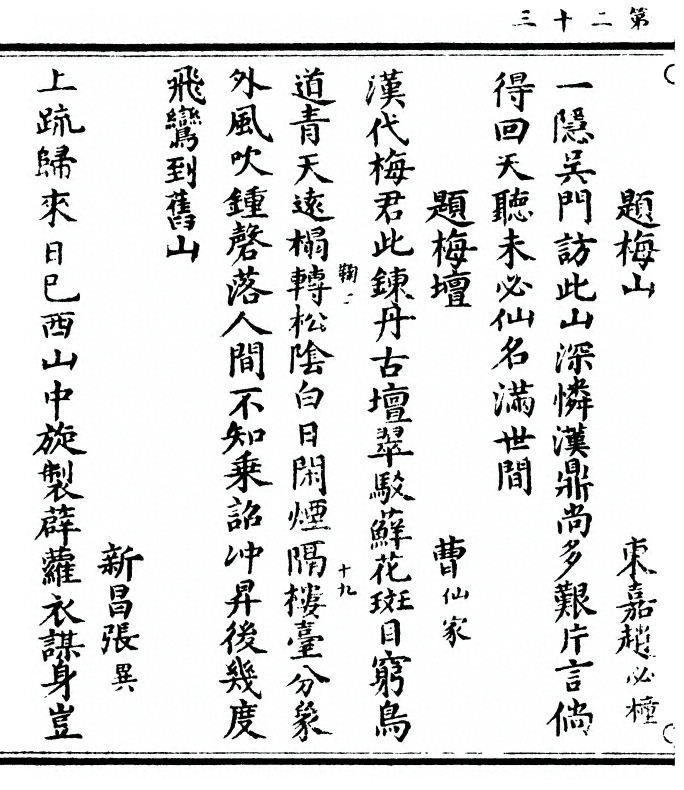 第二十三
題梅山
東嘉趙必橦
一隱吳門訪此山深憐漢鼎尚多艱片言倘
得回天聽未必仙名滿世間
題梅壇
曹仙家
漢代梅君此鍊丹古壇翠駮蘚花斑目窮鳥
道青天遠榻轉松陰白日閑煙隔樓臺分象
鞠一
十九
外風吹鍾磬落人間不知乘詔冲昇後幾度
飛鸞到舊山
新昌張異
上疏歸來日已西山中旋製薜蘿衣謀身豈